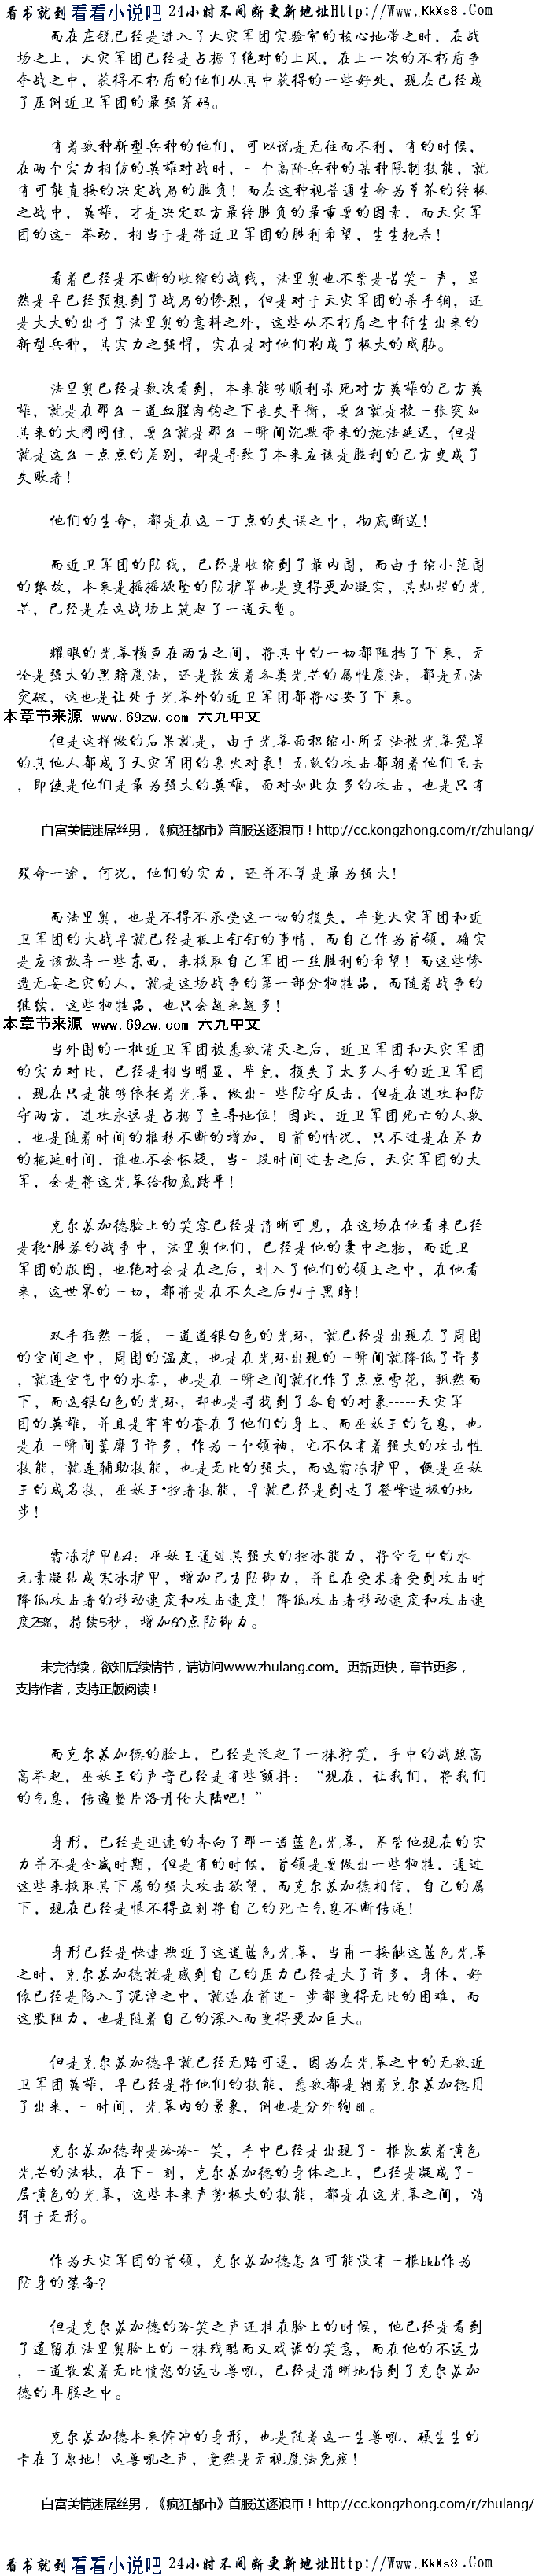 看书就到 看看小说吧 24小时不间断更新地址Http://Www.KkXs8.Com
而在庄锐已经是进入了天灾军团实验室的核心地带之时，在战
场之上，天灾军团已经是占据了绝对的上风，在上一次的不朽盾争
夺战之中，获得不朽盾的他们从其中获得的一些好处，现在已经成
了压倒近卫军团的最强筹码。
有着数种新型兵种的他们，可以说是无往而不利，有的时候，
在两个实力相仿的英雄对战时，一个高阶兵种的某种限制技能，就
有可能直接的决定战局的胜负！而在这种视普通生命为草芥的终极
之战中，英雄，才是决定双方最终胜负的最重要的因素，而天灾军
团的这一举动，相当于是将近卫军团的胜利希望，生生扼杀！
看着已经是不断的收缩的战线，法里奥也不禁是苦笑一声，虽
然是早已经预想到了战局的惨烈，但是对于天灾军团的杀手锏，还
是大大的出乎了法里奥的意料之外，这些从不朽盾之中衍生出来的
新型兵种，其实力之强悍，实在是对他们构成了极大的威胁。
法里奥已经是数次看到，本来能够顺利杀死对方英雄的己方英
雄，就是在那么一道血腥肉钩之下丧失平衡，要么就是被一张突如
其来的大网网住，要么就是那么一瞬间沉默带来的施法延迟，但是
就是这么一点点的差别，却是导致了本来应该是胜利的己方变成了
失败者！
他们的生命，都是在这一丁点的失误之中，彻底断送！
而近卫军团的防线，已经是收缩到了最内围，而由于缩小范围
的缘故，本来是摇摇欲坠的防护罩也是变得更加凝实，其灿烂的光
芒，已经是在这战场上筑起了一道天堑。
耀眼的光幕横亘在两方之间，将其中的一切都阻挡了下来，无
论是强大的黑暗魔法，还是散发着各类光芒的属性魔法，都是无法
突破，这也是让处于光幕外的近卫军团都将心安了下来。
本章节来源 www.69zw.com 六九中文
但是这样做的后果就是，由于光幕面积缩小所无法被光幕笼罩
的其他人都成了天灾军团的集火对象！无数的攻击都朝着他们飞去
，即使是他们是最为强大的英雄，面对如此众多的攻击，也是只有
白富美情迷屌丝男，《疯狂都市》首服送逐浪币！http://cc.kongzhong.com/r/zhulang/
殒命一途，何况，他们的实力，还并不算是最为强大！
而法里奥，也是不得不承受这一切的损失，毕竟天灾军团和近
卫军团的大战早就已经是板上钉钉的事情，而自己作为首领，确实
是应该放弃一些东西，来换取自己军团一丝胜利的希望！而这些惨
遭无妄之灾的人，就是这场战争的第一部分牺牲品，而随着战争的
继续，这些牺牲品，也只会越来越多！
本章节来源 www.69zw.com 六九中文
当外围的一批近卫军团被悉数消灭之后，近卫军团和天灾军团
的实力对比，已经是相当明显，毕竟，损失了太多人手的近卫军团
，现在只是能够依托着光幕，做出一些防守反击，但是在进攻和防
守两方，进攻永远是占据了主导地位！因此，近卫军团死亡的人数
，也是随着时间的推移不断的增加，目前的情况，只不过是在尽力
的拖延时间，谁也不会怀疑，当一段时间过去之后，天灾军团的大
军，会是将这光幕给彻底踏平！
克尔苏加德脸上的笑容已经是清晰可见，在这场在他看来已经
是稳*胜券的战争中，法里奥他们，已经是他的囊中之物，而近卫
军团的版图，也绝对会是在之后，划入了他们的领土之中，在他看
来，这世界的一切，都将是在不久之后归于黑暗！
双手猛然一搓，一道道银白色的光环，就已经是出现在了周围
的空间之中，周围的温度，也是在光环出现的一瞬间就降低了许多
，就连空气中的水雾，也是在一瞬之间就化作了点点雪花，飘然而
下，而这银白色的光环，却也是寻找到了各自的对象-----天灾军
团的英雄，并且是牢牢的套在了他们的身上、而巫妖王的气息，也
是在一瞬间萎靡了许多，作为一个领袖，它不仅有着强大的攻击性
技能，就连辅助技能，也是无比的强大，而这霜冻护甲，便是巫妖
王的成名技，巫妖王*控者技能，早就已经是到达了登峰造极的地
步！
霜冻护甲lv4：巫妖王通过其强大的控冰能力，将空气中的水
元素凝结成寒冰护甲，增加己方防御力，并且在受术者受到攻击时
降低攻击者的移动速度和攻击速度！降低攻击者移动速度和攻击速
度25%，持续5秒，增加60点防御力。
未完待续，欲知后续情节，请访问www.zhulang.com。更新更快，章节更多，
支持作者，支持正版阅读！
而克尔苏加德的脸上，已经是泛起了一抹狞笑，手中的战旗高
高举起，巫妖王的声音已经是有些颤抖：“现在，让我们，将我们
的气息，传遍整片洛丹伦大陆吧！”
身形，已经是迅速的奔向了那一道蓝色光幕，尽管他现在的实
力并不是全盛时期，但是有的时候，首领是要做出一些牺牲，通过
这些来换取其下属的强大攻击欲望，而克尔苏加德相信，自己的属
下，现在已经是恨不得立刻将自己的死亡气息不断传递！
身形已经是快速欺近了这道蓝色光幕，当甫一接触这蓝色光幕
之时，克尔苏加德就是感到自己的压力已经是大了许多，身体，好
像已经是陷入了泥淖之中，就连在前进一步都变得无比的困难，而
这股阻力，也是随着自己的深入而变得更加巨大。
但是克尔苏加德早就已经无路可退，因为在光幕之中的无数近
卫军团英雄，早已经是将他们的技能，悉数都是朝着克尔苏加德用
了出来，一时间，光幕内的景象，倒也是分外绚丽。
克尔苏加德却是冷冷一笑，手中已经是出现了一根散发着黄色
光芒的法杖，在下一刻，克尔苏加德的身体之上，已经是凝成了一
层黄色的光幕，这些本来声势极大的技能，都是在这光幕之间，消
弭于无形。
作为天灾军团的首领，克尔苏加德怎么可能没有一根bkb作为
防身的装备？
但是克尔苏加德的冷笑之声还挂在脸上的时候，他已经是看到
了遗留在法里奥脸上的一抹残酷而又戏谑的笑意，而在他的不远方
，一道散发着无比愤怒的远古兽吼，已经是清晰地传到了克尔苏加
德的耳膜之中。
克尔苏加德本来俯冲的身形，也是随着这一生兽吼，硬生生的
卡在了原地！这兽吼之声，竟然是无视魔法免疫！
白富美情迷屌丝男，《疯狂都市》首服送逐浪币！http://cc.kongzhong.com/r/zhulang/
看书就到 看看小说吧 24小时不间断更新地址Http://Www.KkXs8.Com